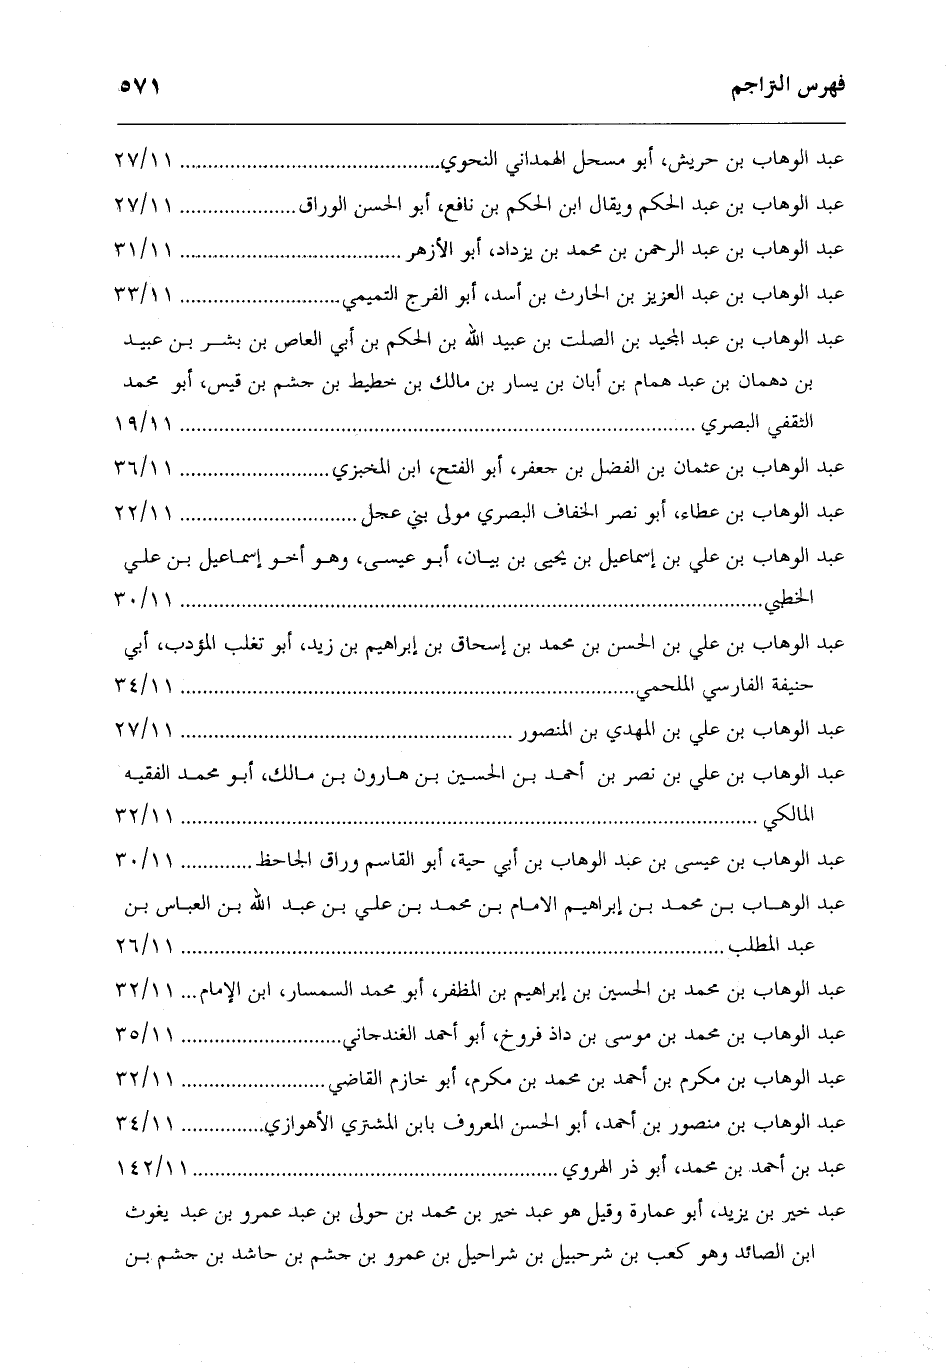 فهرس التراجم ٥٧١
عبد الوهاب بن حريش، أبو مسحل الهمداني النحوي............................................. ٢٧/١١
عبد الوهاب بن عبد الحكم ويقال ابن الحكم بن نافع، أبو الحسن الوراق.................... ٢٧/١١
عبد الوهاب بن عبد الرحمن بن محمد بن يزداد، أبو الأزهر ....................................... ٣١/١١
عبد الوهاب بن عبد العزيز بن الحارث بن أسد، أبو الفرج التميمي............................ ٣٣/١١
عبد الوهاب بن عبد المجيد بن الصلت بن عبيد الله بن الحكم بن أبي العاص بن بشر بن عبيد
بن دهمان بن عبد همام بن أبان بن يسار بن مالك بن خطيط بن جشم بن قيس، أبو محمد
الثقفي البصري ........................................................................................... ١٩/١١
عبد الوهاب بن عثمان بن الفضل بن جعفر، أبو الفتح، ابن المخبزي.......................... ٣٦/١١
عبد الوهاب بن عطاء، أبو نصر الخفاف البصري مولى بني عجل............................... ٢٢/١١
عبد الوهاب بن علي بن إسماعيل بن يحيى بن بيان، أبو عيسى، وهو أخو إسماعيل بن علي
الخطبي...................................................................................................... ٣٠/١١
عبد الوهاب بن علي بن الحسن بن محمد بن إسحاق بن إبراهيم بن زيد، أبو تغلب المؤدب، أبي
حنيفة الفارسي الملحمي................................................................................ ٣٤/١١
عبد الوهاب بن علي بن المهدي بن المنصور .......................................................... ٢٧/١١
عبد الوهاب بن علي بن نصر بن أحمد بن الحسين بن هارون بن مالك، أبو محمد الفقيه
المالكي ..................................................................................................... ٣٢/١١
عبد الوهاب بن عيسى بن عبد الوهاب بن أبي حية، أبو القاسم وراق الجاحظ............. ٣٠/١١
عبد الوهاب بن محمد بن إبراهيم الامام بن محمد بن علي بن عبد الله بن العباس بن
عبد المطلب ............................................................................................... ٢٦/١١
عبد الوهاب بن محمد بن الحسين بن إبراهيم بن المظفر، أبو محمد السمسار، ابن الإمام... ٣٢/١١
عبد الوهاب بن محمد بن موسى بن داذ فروخ، أبو أحمد الغندجاني............................ ٣٥/١١
عبد الوهاب بن مكرم بن أحمد بن محمد بن مكرم، أبو خازم القاضي......................... ٣٢/١١
عبد الوهاب بن منصور بن أحمد، أبو الحسن المعروف بابن المشتري الأهوازي.............. ٣٤/١١
عبد بن أحمد بن محمد، أبو ذر الهروي................................................................ ١٤٢/١١
عبد خير بن يزيد، أبو عمارة وقيل هو عبد خير بن محمد بن حولى بن عبد عمرو بن عبد يغوث
ابن الصائد وهو كعب بن شرحبيل بن شراحيل بن عمرو بن جشم بن حاشد بن جشم بن